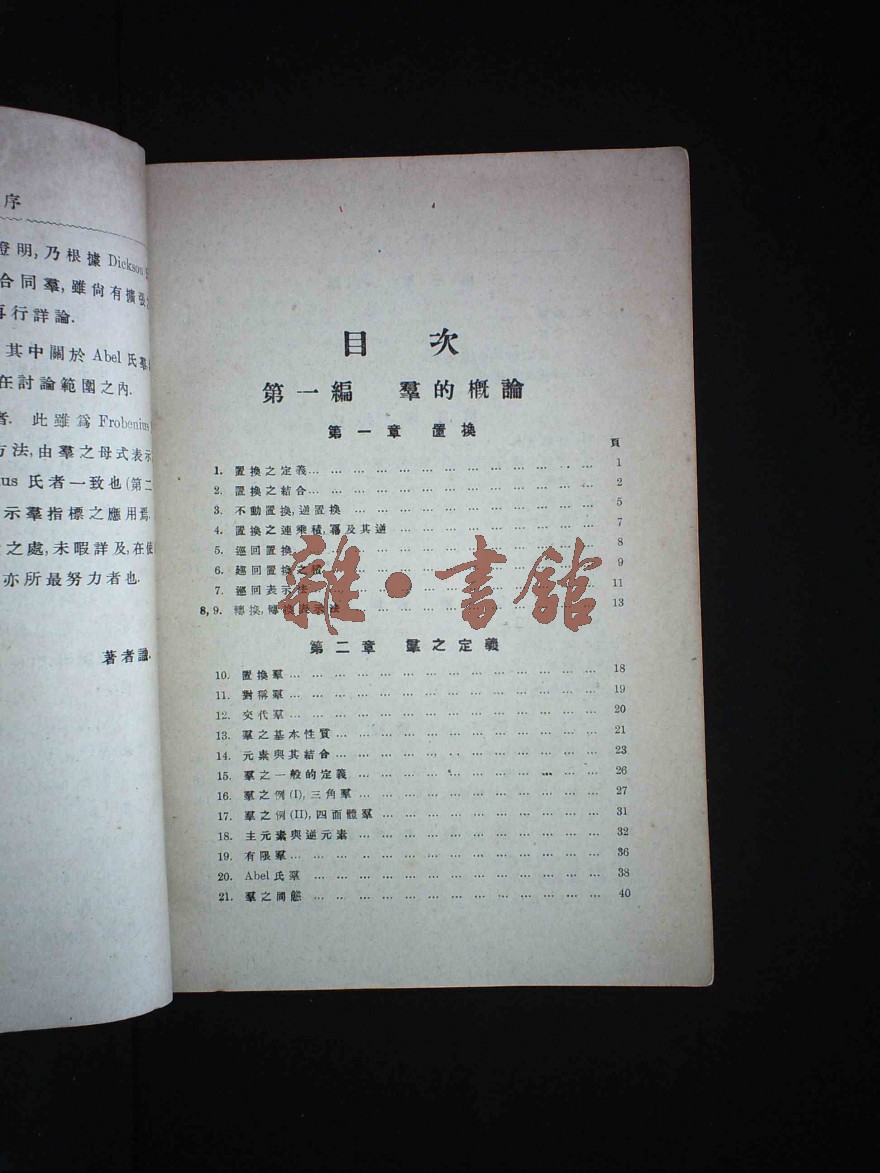 序
證明,乃根據 Dickson
合同羣,雖尙有擴張
再行詳論.
其中關於 Abel 氏羣
在討論範圍之內.
者. 此雖爲 Frobenius
方法,由羣之母式表示
ius 氏者一致也(第二
示羣指標之應用焉.
之處,未暇詳及,在
亦所最努力者也.
著者識.
目 次
第一編 羣的概論
第一章 置換
頁
1. 置換之定義 … … … … … … … … … … 1
2. 置換之結合 … … … … … … … … … … 2
3. 不動換置,逆置換 … … … … … … … … … 5
4. 置換之連乘積,冪及其逆 … … … … … … … 7
5. 巡回置換 … … … … … … … … … … 8
6. 巡回置換之積 … … … … … … … … … 9
7. 巡回表示法 … … … … … … … … … … 11
8, 9. 轉換,轉換表示法 … … … … … … … … 13
雜·書館
第二章 羣之定義
10. 置換羣 … … … … … … … … … … … 18
11. 對稱羣 … … … … … … … … … … … 19
12. 交代羣 … … … … … … … … … … … 20
13. 羣之基本性質 … … … … … … … … … 21
14. 元素與其結合 … … … … … … … … … 23
15. 羣之一般的定義 … … … … … … … … … 26
16. 羣之例(I),三角羣 … … … … … … … … 27
17. 羣之例(II),四面體羣 … … … … … … … 31
18. 主元素與逆元素 … … … … … … … … … 32
19. 有限羣 … … … … … … … … … … … 36
20. Abel 氏羣 … … … … … … … … … … 38
21. 羣之間態 … … … … … … … … … … 40